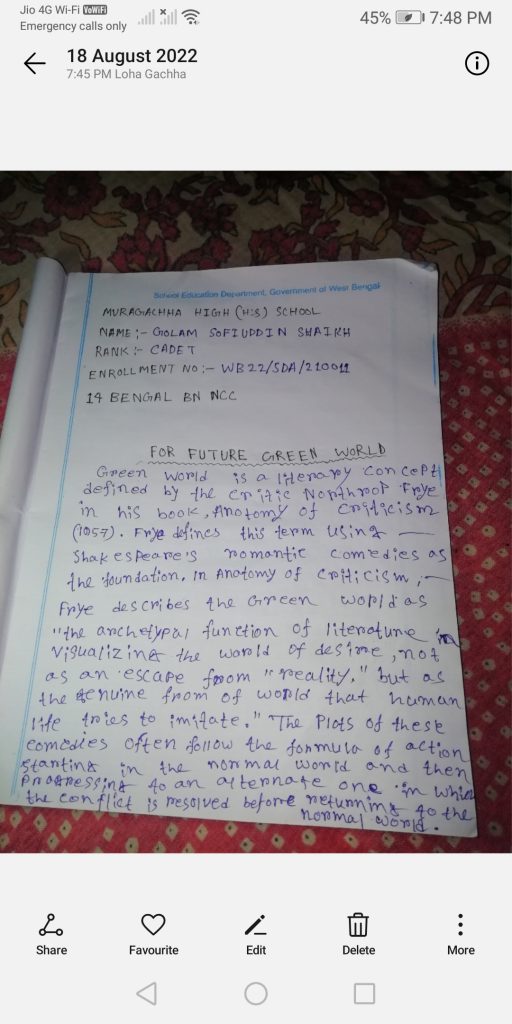 Jio 4G Wi-Fi VoWiFi
Emergency calls only
45% 7:48 PM
18 August 2022
7:45 PM Loha Gachha
School Education Department, Government of West Bengal
MURAGACHHA HIGH (H:S) SCHOOL
NAME :- GOLAM SOFIUDDIN SHAIKH
RANK :- CADET
ENROLLMENT NO :- WB22/SDA/210011
14 BENGAL BN NCC
FOR FUTURE GREEN WORLD
Green world is a literary concept
defined by the critic Northrop Frye
in his book, Anatomy of Criticism
(1957). Frye defines this term using
Shakespeare's romantic comedies as
the foundation, in Anatomy of Criticism,
Frye describes the Green world as
"the archetypal function of literature in
visualizing the world of desire, not
as an escape from "reality," but as
the genuine from of world that human
life tries to imitate." The Plots of these
comedies often follow the formula of action
starting in the normal world and then
progressing to an alternate one in which
the conflict is resolved before returning to the
normal world.
Share Favourite Edit Delete More